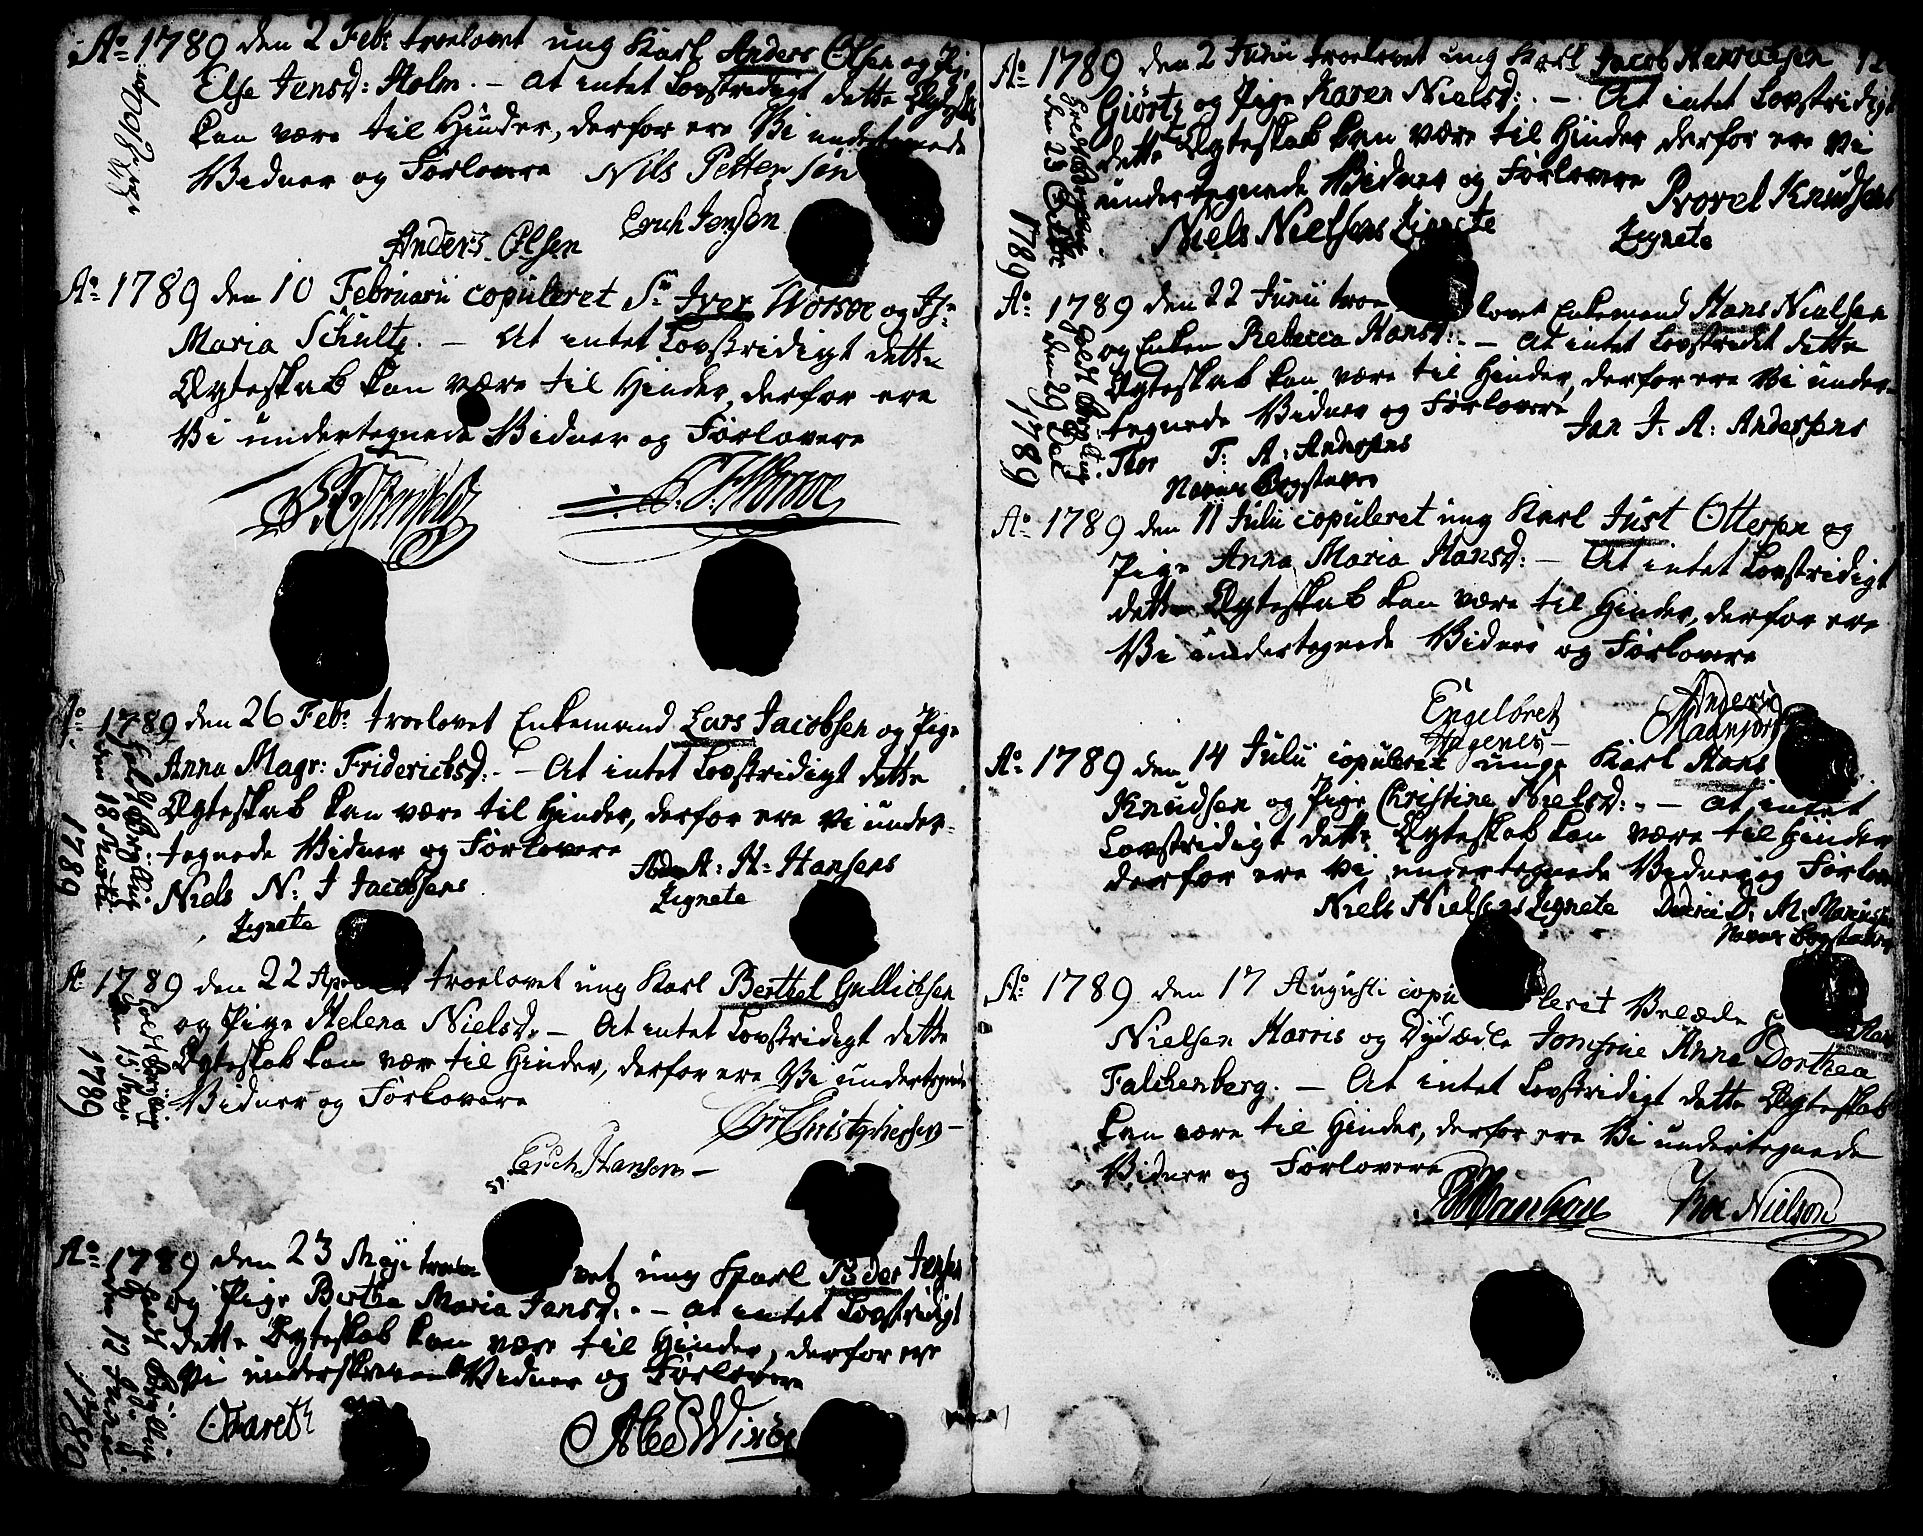 Ao 1789 den 2 Febr: troelovet ung Karl Anders Olsen og Pi:
Else Jensd: Holm. - At intet Lovstridigt dette Ægteskab
kan være til Hinder, derfor ere Vi undertegnede
Vidner og Forlovere Nils Petter Søn
Erich Jensøn
Anders Olsen
Ao 1789 den 10 Februarii copuleret Sr Iver Worsøe og Jfr
Maria Schultz. - At intet Lovstridigt dette
Ægteskab kan være til Hinder, derfor ere
Vi undertegnede Vidner og Forlovere
Worsøe
Ao 1789 den 26 Febr: troelovet Enkemand Lars Jacobsen og Pige
Anna Magr: Friderichsd: - At intet Lovstridigt dette
Ægteskab kan være til Hinder, derfor ere vi under-
tegnede Vidner og Forlovere
A: H: Hansens
Niels N: J Jacobsens
Zignete
Zignete
den 18 Martii
1789
Ao 1789 den 22 troelovet ung Karl Berthel Gullichsen
og Pige Helena Nielsd: - At intet Lovstridigt dette
Ægteskab kan vær til Hinder, derfor ere Vi undertegnede
Vidner og Forlovere
Christophersen
Erich Hansen
den 15 Maji
1789
Ao 1789 den 23 Maji vet ung Karl Peder Jensen
og Pige Bertha Maria Jensd: - at intet Lovstridigt
dette Ægteskab kan være til Hinder, derfor ere
Vi underskrevne Vidner og Forlovere
1789
Ao 1789 den 2 Junii troelovet ung Karl Jacob Henrichsen
Giørtz og Pige Karen Nielsd: - At intet Lovstridigt
dette Ægteskab kan være til Hinder derfor ere vi
undertegnede Vidner og Forlovere Provel Knudsens
Niels Nielsens Zignete Zignete
1789
Ao 1789 den 22 Junii troe lovet Enkemand Hans Nielsen
og Enken Rebecca Hansd: - At intet Lovstridit dette
Ægteskab kan være til Hinder, derfor ere Vi under-
tegnede Vidner og Forlovere Jan J. A: Andersens
Thor T: A: Andersens
Navns Bogstaver
1789
Ao 1789 den 11 Julii copuleret ung Karl Just Ottersen og
Pige Anna Maria Hansd: - At intet Lovstridigt
dette Ægteskab kan være til Hinder, derfor ere
Vi undertegnede Vidner og Forlovere
Engelbret
Hagenes
Anders
Ao 1789 den 14 Julii copuleret unge Karl Hans
Knudsen og Pige Christine Nielsd: - at intet
Lovstridigt dette Ægteskab kan være til Hinder
derfor ere vi undertegnede Vidner og Forlov
Niels Nielsens Zignete D: M:
Navns Bogstaver
Ao 1789 den 17 Augusti copu leret Velæde
Nielsen Harris og Dydædle Jomfrue Anna Dorthea
Falchenberg. - At intet Lovstridigt dette Ægteskab
kan være til Hinder, derfor ere Vi undertegnede
Vidner og Forlovere
Nielson